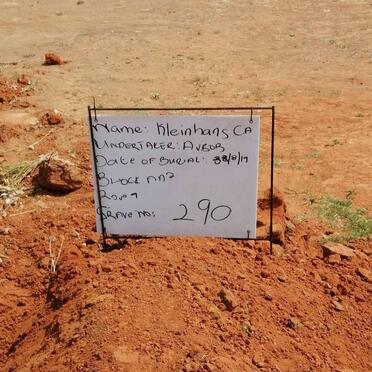 Name: Kleinhans CA
Undertaker: Avbob
Date of Burial:
Block
Row
Grave No: 290